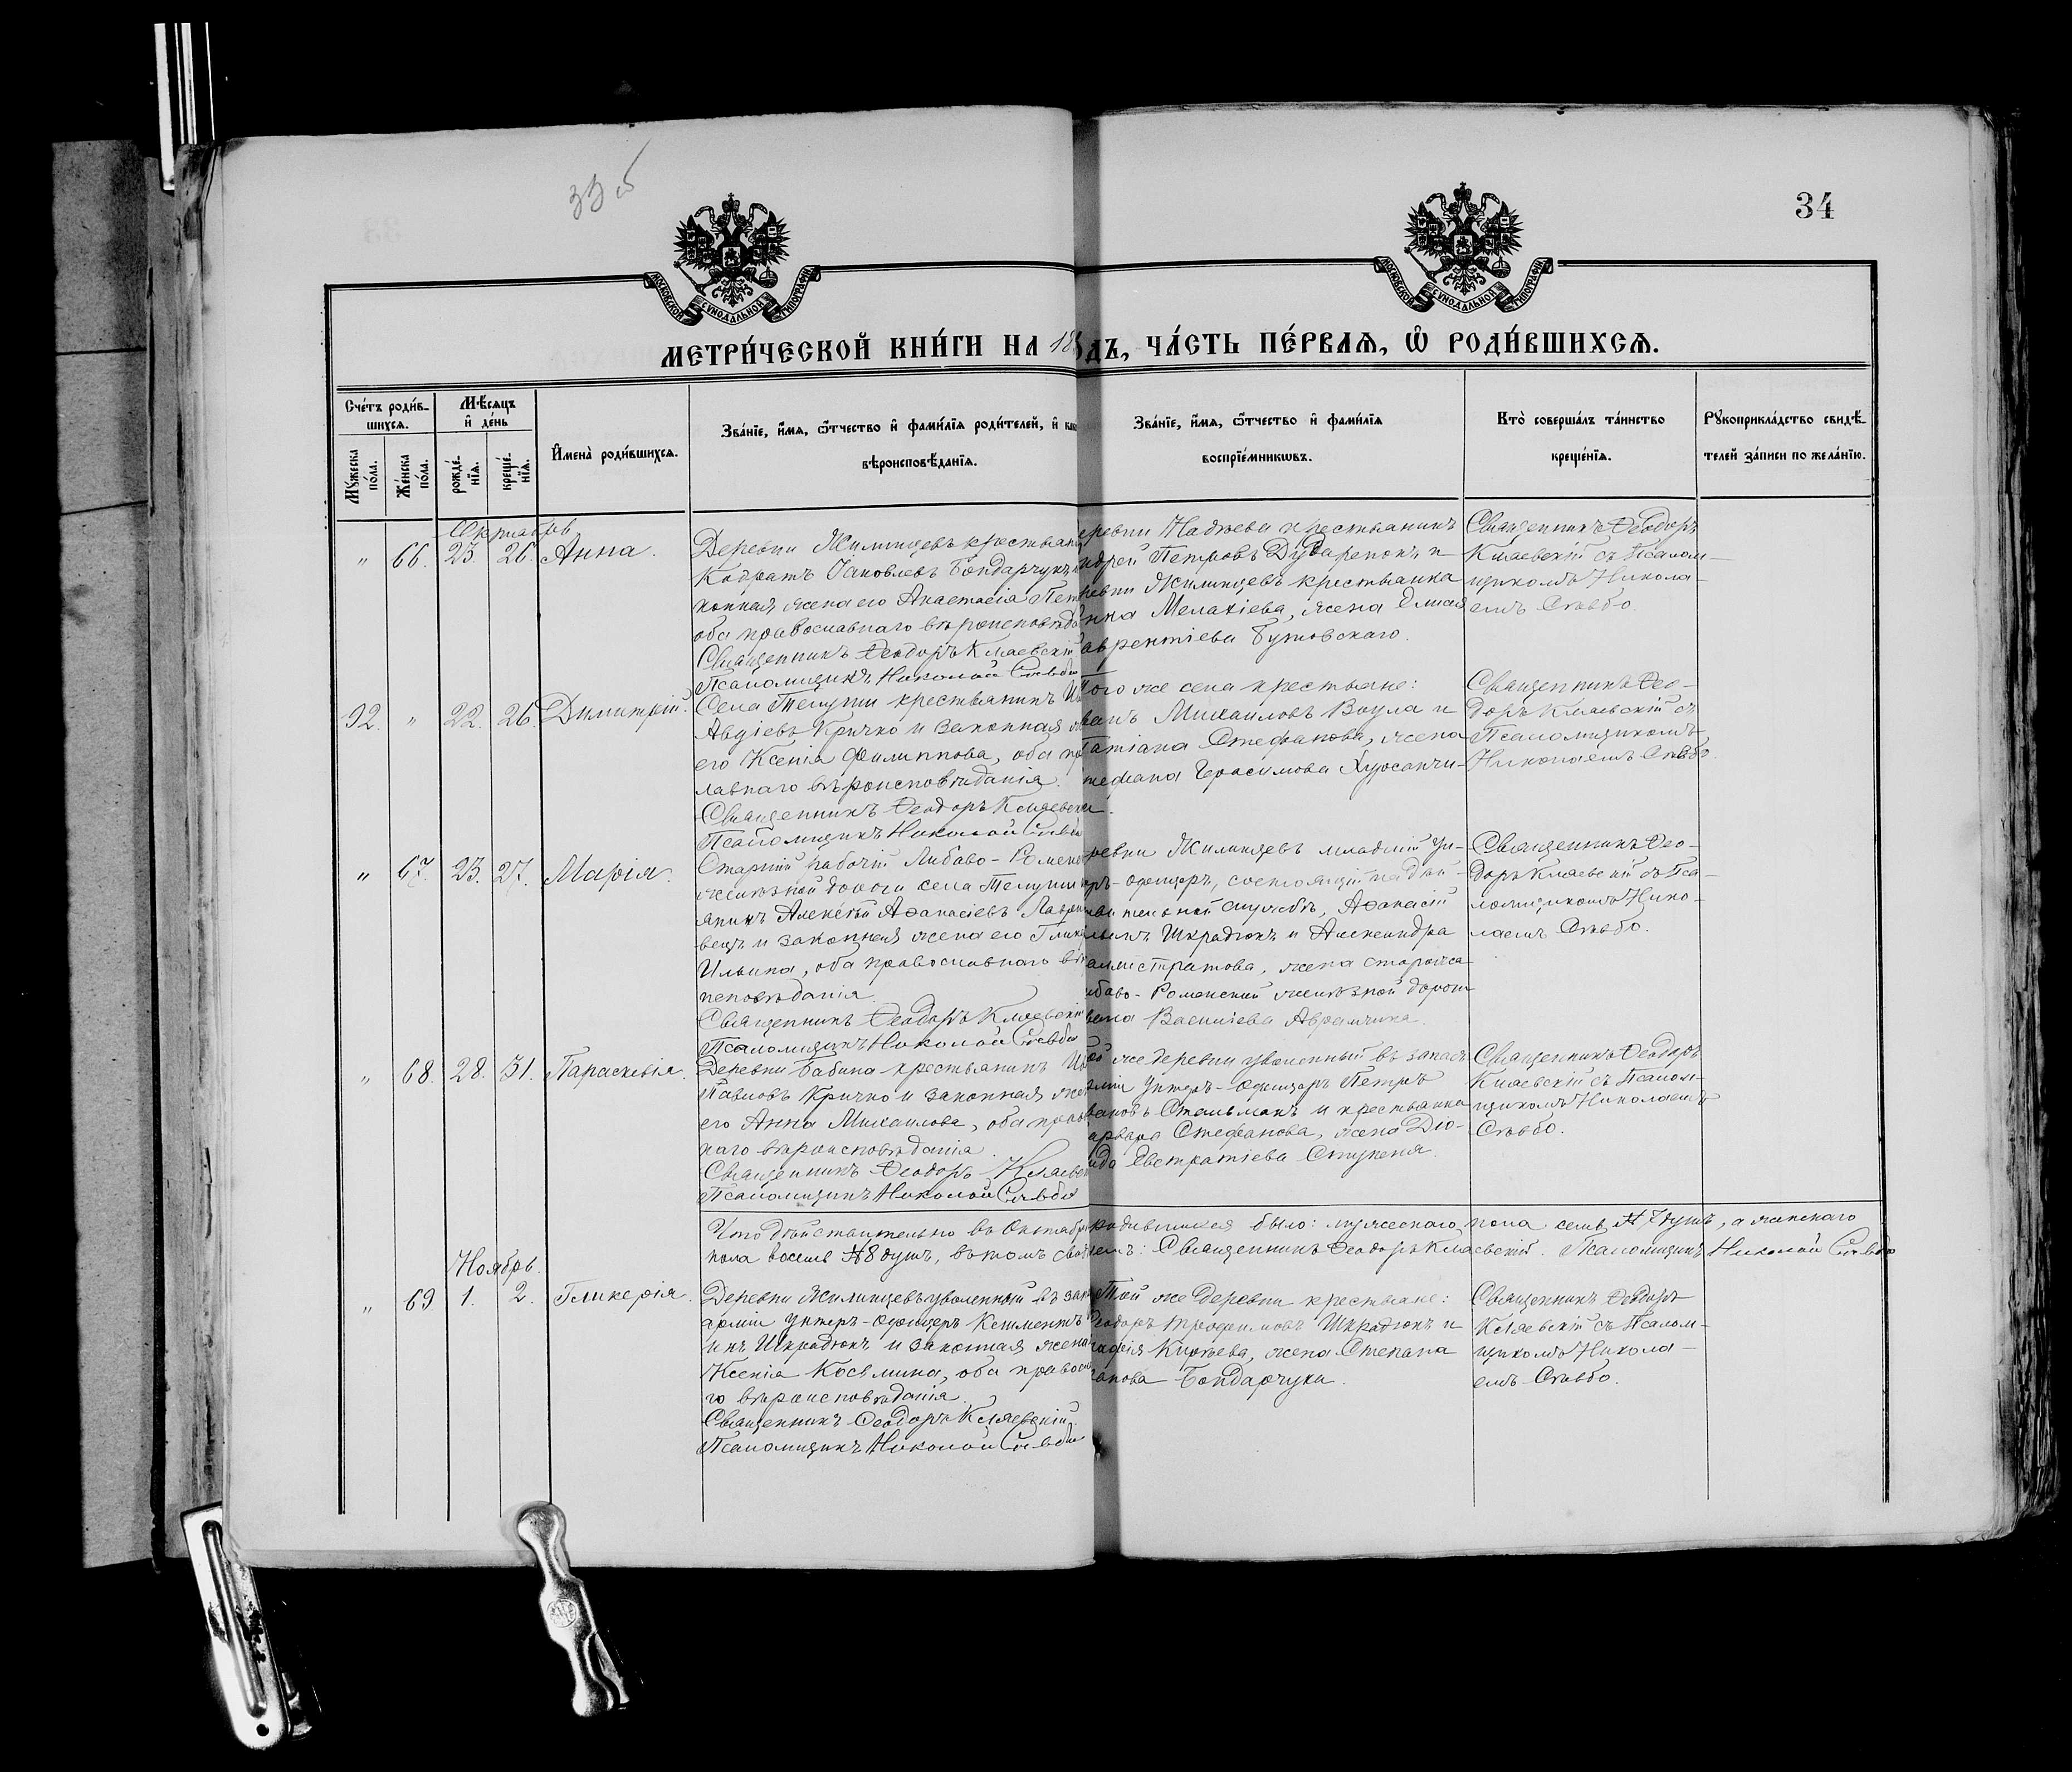 33 об
34
МОСКОВСКОЙ СУНОДАЛЬНОЙ ТИПОГРАФІИ
МОСКОВСКОЙ СУНОДАЛЬНОЙ ТИПОГРАФІИ
МЕТРИ́ЧЕСКОЙ КНИ́ГИ НА 18
ДЪ, ЧА́СТЬ ПЕ́РВАЯ, Ѡ РОДИ́ВШИХСЯ.
Сче́тъ роди́в-
шихся.
Мꙋ́жеска по́ла.
Же́нска по́ла.
Мѣ́сяцъ и де́нь
рожде́-нїя.
креще́-нїя.
Имена̀ роди́вшихся.
Зва́нїе, и́мя, ѻ́тчество и фами́лїя роди́телей, и
вѣроисповѣ́данїя.
Зва́нїе, и́мя, ѻ́тчество и фами́лїя
воспрїе́мникωвъ.
Кто̀ соверша́лъ та́инство
креще́нїя.
Рꙋкоприкла́дство свидѣ́-
телей за́писи по жела́нїю.
Октябрь
" 66. 23. 26. Анна.
Деревни Жилинцевъ крестьян
Кодратъ Іаковлевъ Бондарчукъ и
конная жена его Анастасія Пет
оба православнаго вѣроисповѣда
Священникъ Ѳеодоръ Кляевскій
Псаломщикъ Николай Савбо
еревни Наджева крестьянинъ
ндрей Петровъ Дударенокъ и
ревни Жилинцевъ крестьянка
нна Мелахіева, жена Елисея
аврентіева Бутовскаго.
Священникъ Ѳеодоръ
Кляевскій съ Псалом-
щикомъ Никола-
емъ Савбо.
92. " 22. 26. Димитрій.
Села Телуши крестьянинъ Ив
Авдіевъ Кричко и законная ж
его Ксенія Филиппова, оба пр
лавнаго вѣроисповѣданія.
Священникъ Ѳеодоръ Кляевскі
Псаломщикъ Николай Савбо
того же села крестьяне:
ванъ Михаиловъ Воула и
атіана Стефанова, жена
тефана Герасимова
Священникъ Ѳео-
доръ Кляевскій съ
Псаломщикомъ
Николаемъ Савбо.
" 67. 23. 27. Марія.
Старшій рабочій Либаво-Роменс
желѣзной дороги села Телуши
янинъ Алексѣй Аѳанасіевъ Лаврин
вецъ и законная жена его Глике
Ильина, оба православнаго вѣ
исповѣданія.
Священникъ Ѳеодоръ Кляевскій
Псаломщикъ Николай Савбо
ревни Жилинцевъ младшій ун-
ръ-офицеръ, состоящій на дѣй-
вительной службѣ, Аѳанасій
Шкрадюкъ и Александра
аллистратова, жена сторожа
ибаво-Роменской желѣзной дороги
вана Василіева Аврамчика.
Священникъ Ѳео-
доръ Кляевскій съ Пса-
ломщикомъ Нико-
лаемъ Савбо.
" 68. 28. 31. Параскевія.
Деревни Бабина крестьянинъ Ив
Павловъ Кричко и законная жен
его Анна Михаилова, оба прав
наго вѣроисповѣданія.
Священникъ Ѳеодоръ Кляевск
Псаломщикъ Николай Савбо
ой же деревни уволенный въ запасъ
рміи унтеръ-офицеръ Петръ
вановъ Стельмахъ и крестьянка
арвара Стефанова, жена Дю-
ида Евстратіева Ступеня.
Священникъ Ѳеодоръ
Кляевскій съ Псалом-
щикомъ Николаемъ
Савбо.
Что дѣйствительно въ Октябрѣ родившихся было: мужескаго пола семь 7 душъ, а женскаго
пола восемь 8 душъ, въ томъ свидѣтельствуемъ: Священникъ Ѳеодоръ Кляевскій. Псаломщикъ Николай Савбо
Ноябрь.
" 69 1. 2. Гликерія.
Деревни Жилинцевъ уволенный въ зап
арміи унтеръ-офицеръ Климентъ
инъ Шкрадюкъ и законная жена
Ксенія Косьмина, оба правосл
го вѣроисповѣданія.
Священникъ Ѳеодоръ Кляевскій.
Псаломщикъ Николай Савбо
Той же деревни крестьяне:
еодоръ Трофимовъ Шкрадюкъ и
Кирѣева, жена Степана
Бондарчука.
Священникъ Ѳеодоръ
Кляевскій съ Псалом-
щикомъ Никола-
емъ Савбо.